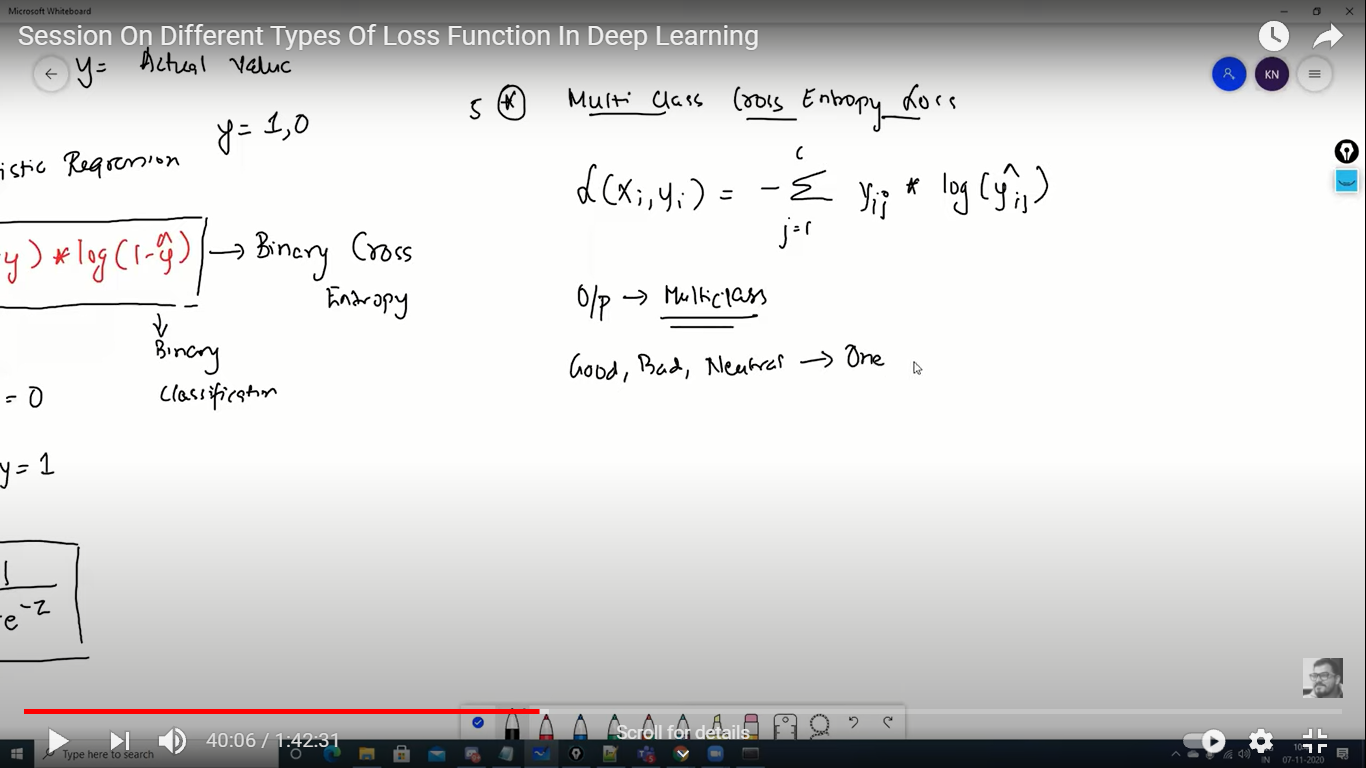 Microsoft Whiteboard
Session On Different Types Of Loss Function In Deep Learning
y= Actual Value
y= 1,0
istic Regression
y) * log(1-ŷ) → Binary Cross
Entropy
Binary
Classification
= 0
y= 1
1
e^-z
KN
5 * Multi Class Cross Entropy Loss
L(xi, yi) = - Σ yij * log(ŷij)
c
j=1
O/p → Multiclass
Good, Bad, Neutral → One
40:06 / 1:42:31
Scroll for details
Type here to search
IN
07-11-2020